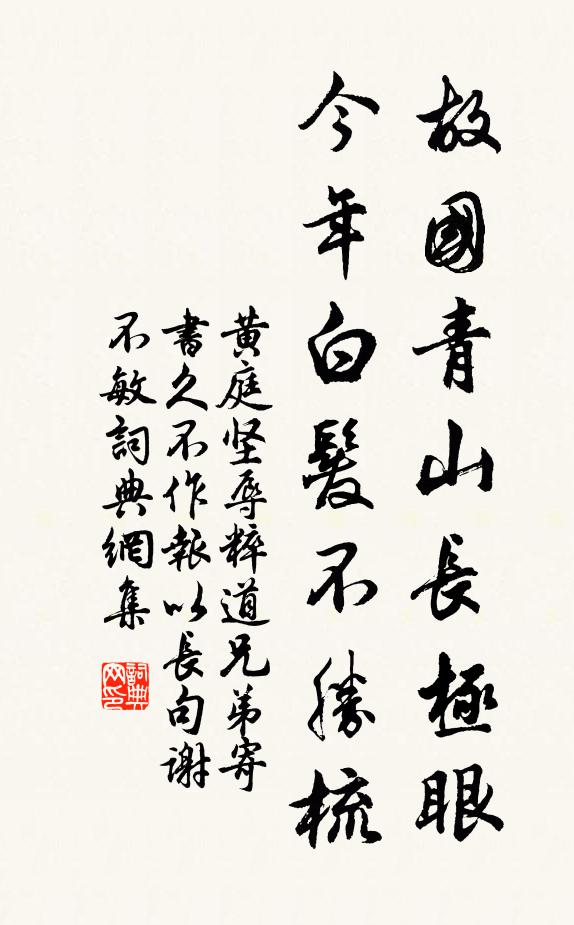 故國青山長極眼
今年白髮不勝梳
黄庭坚辱粹道兄弟寄
書久不作報以長句謝
不敏詞典網集
詞典網印